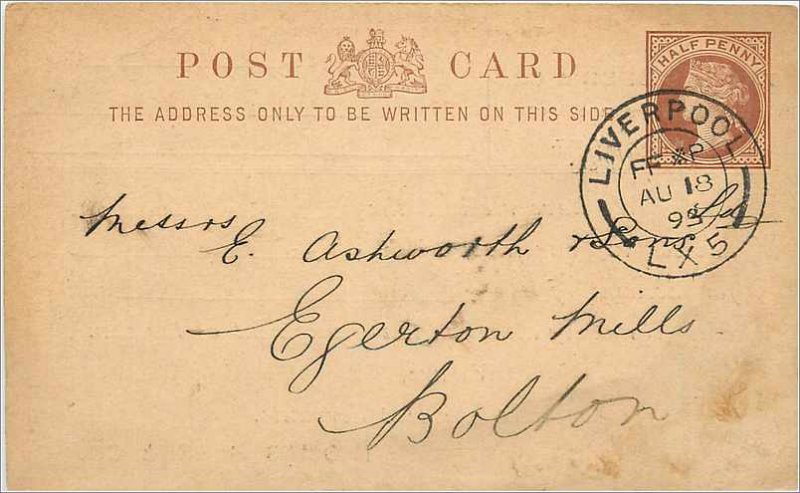 POST CARD
HALF PENNY
THE ADDRESS ONLY TO BE WRITTEN ON THIS SIDE
LIVERPOOL
AU 18
LX5
Messrs
E. Ashworth & Sons Ld
Egerton Mills
Bolton